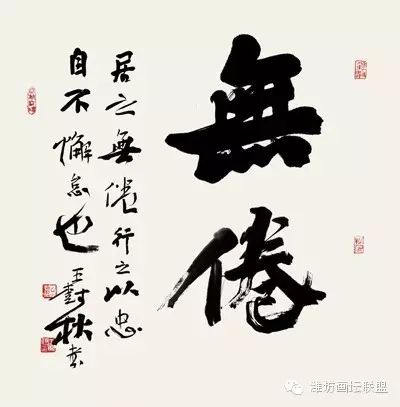 無倦
居之無倦行之以忠
自不懈怠也
王 秋书
潍坊画坛联盟